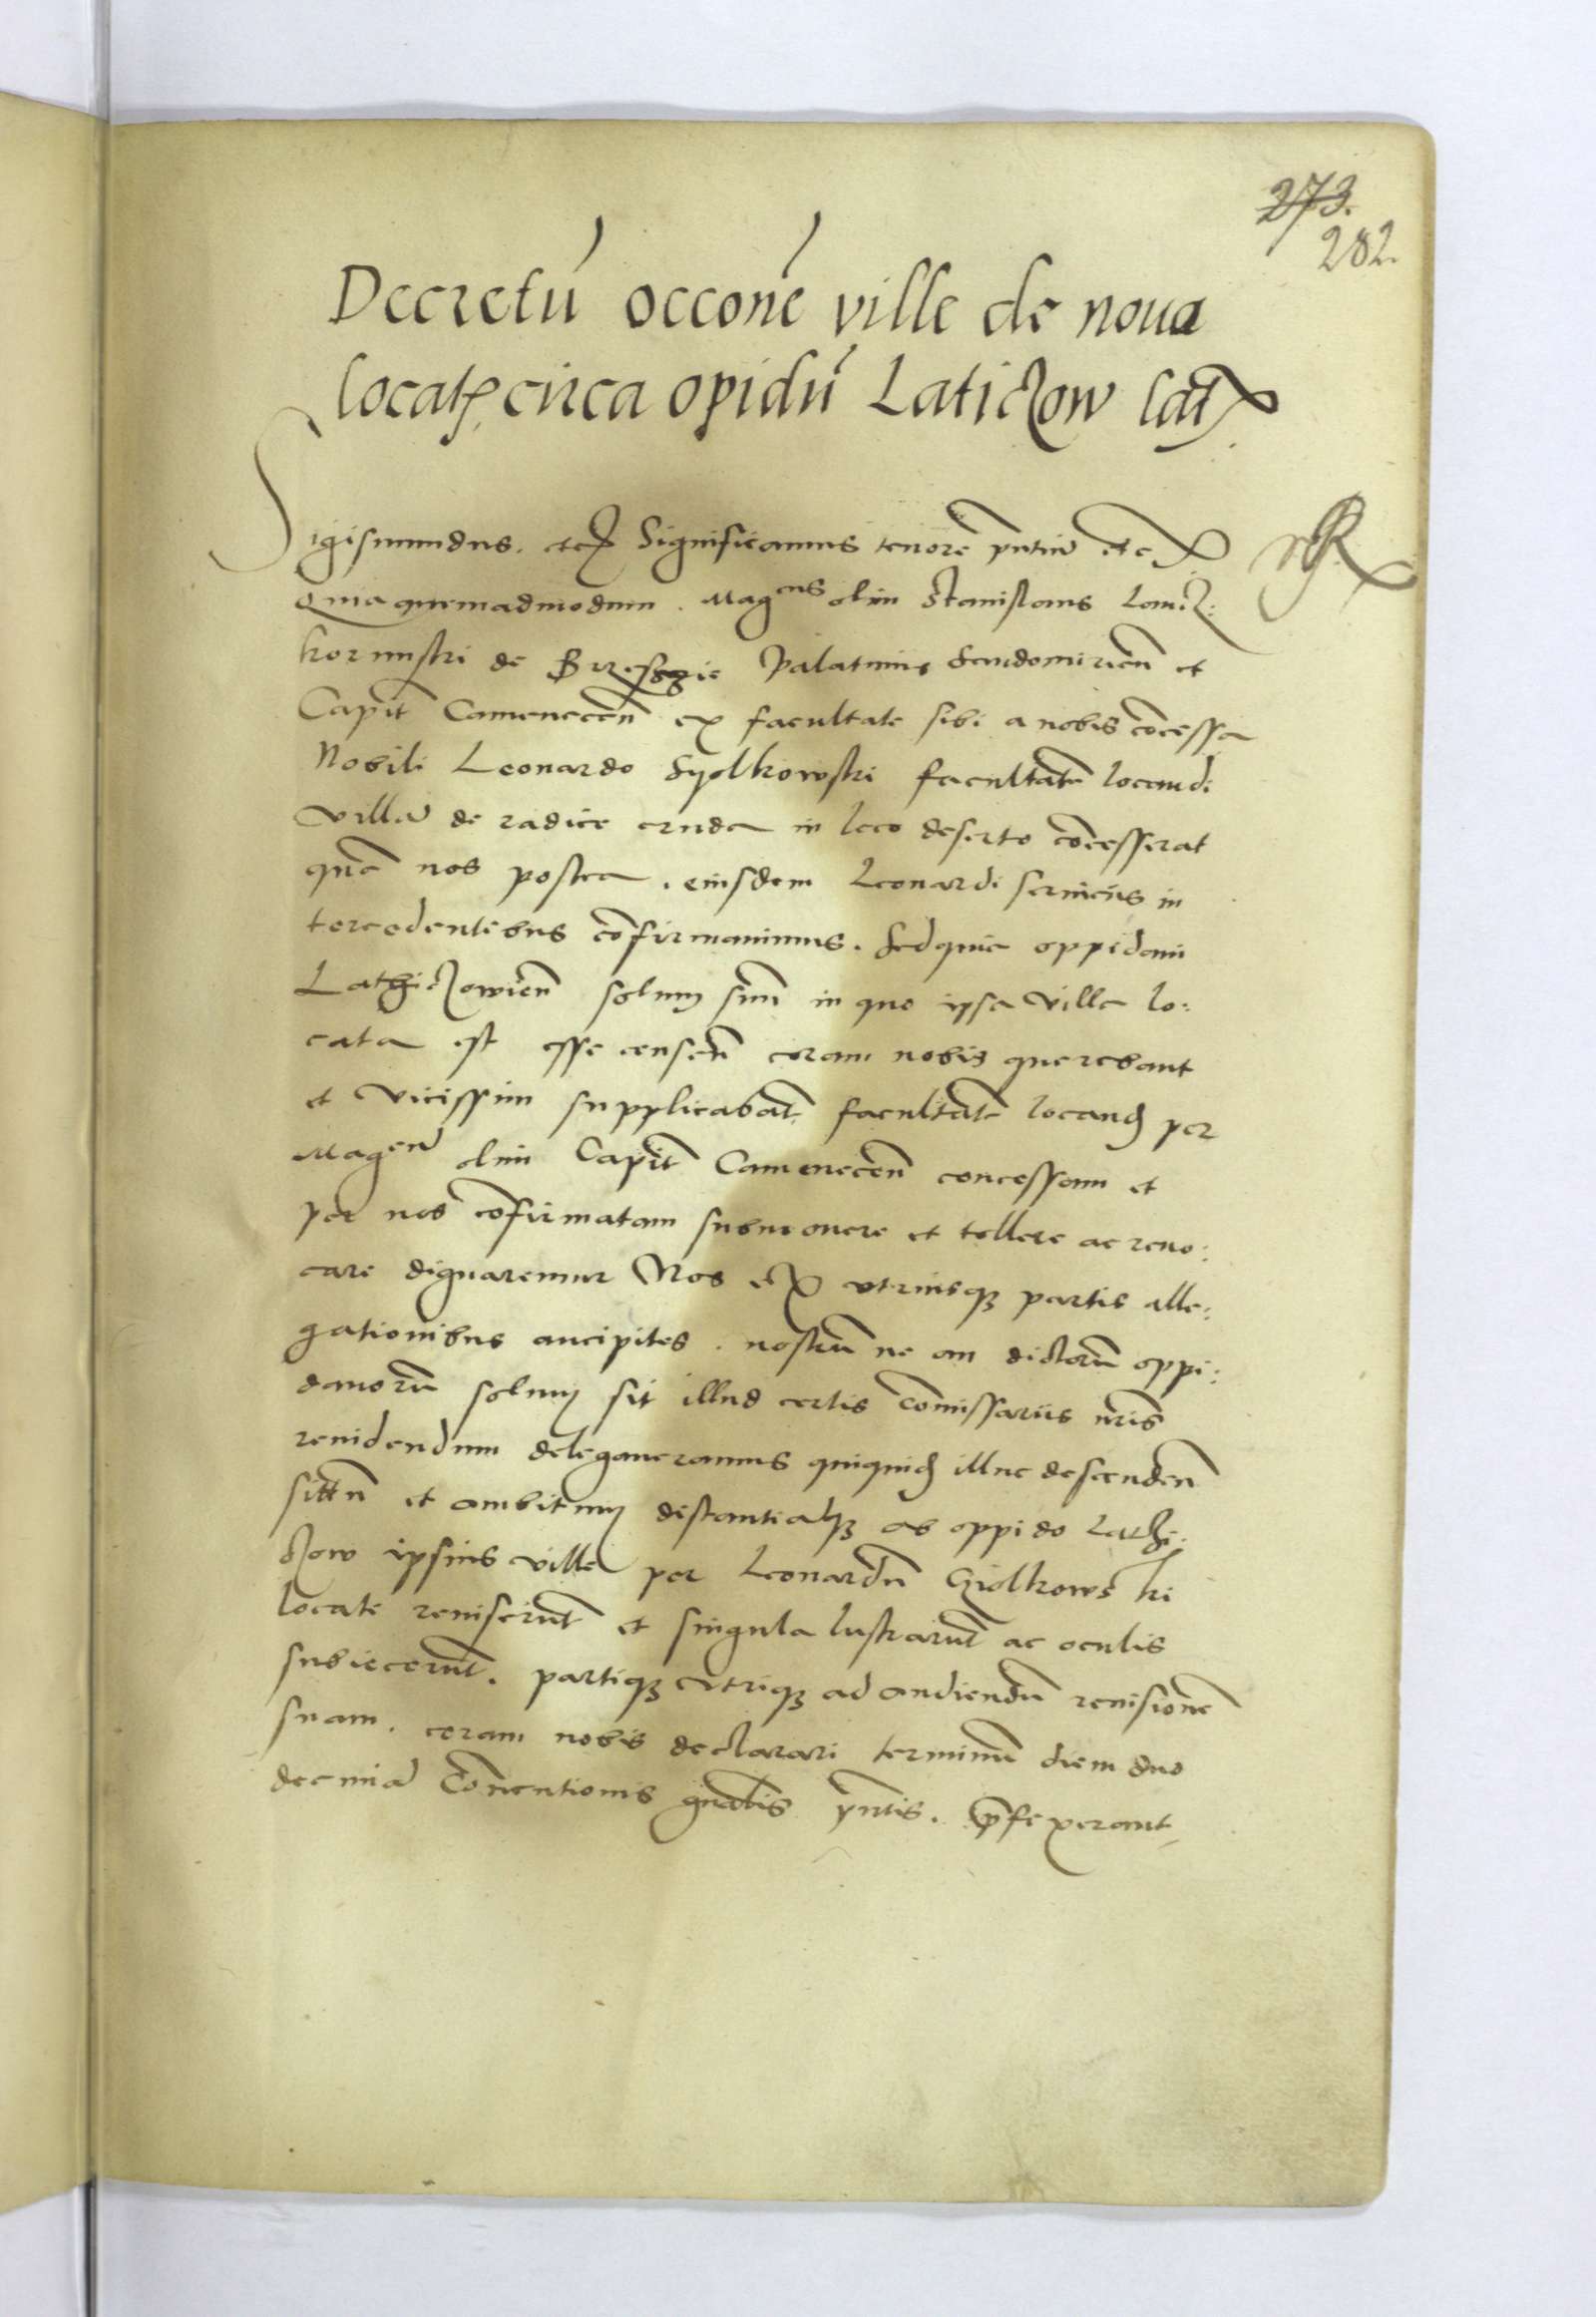 273.
282.
Decretũ occone ville de noua
locat circa opidũ Laticzow lat
Sigismundus. etc Significamus tenorẽ pntiũ etc
Quia quemadmodum. Mag​cus olim Stanislaus Lancz:
korunski de Brzeszie Palatinus Sendomirien̄ et
Capit̄ Camenecen̄ ex facultate sibi a nobis cōcessa
Nobili Leonardo Gyolkowski facultatē locandi
villā de radice cruda in loco deserto cōcesserat
quā nos postea. eiusdem Leonardi seruiciis in
tercedentibus cōfirmauimus. Sed quia oppidani
Lathiczowien̄ solum suū in quo ipsa villa lo:
cata est esse censen̄ coram nobis querebant
et vicissim supplicabāt facultatē locand per
Mag​cum olim Capit̄ Camenecen̄ concessam et
per nos cōfirmatam submouere et tollere ac reuo:
care dignaremur Nos ex vtriusq partis alle:
gationibus ancipites. nostrū ne an dictorū oppi:
danorū solum sit illud certis cōmissariis nr̄is
reuidendum delegaueramus quiquid illuc descenden̄
sitū et ambitum distantiasq ab oppido Lathi:
czow ipsius ville per Leonardū Giolkowski
locate reuiserūt et singula lustrarūt ac oculis
subiecerūt. partiq vtriq ad audiendū reuisionē
suam. coram nobis declarari terminū diem duo
decimā Conuentionis gnalis pn̄tis. prefixerant